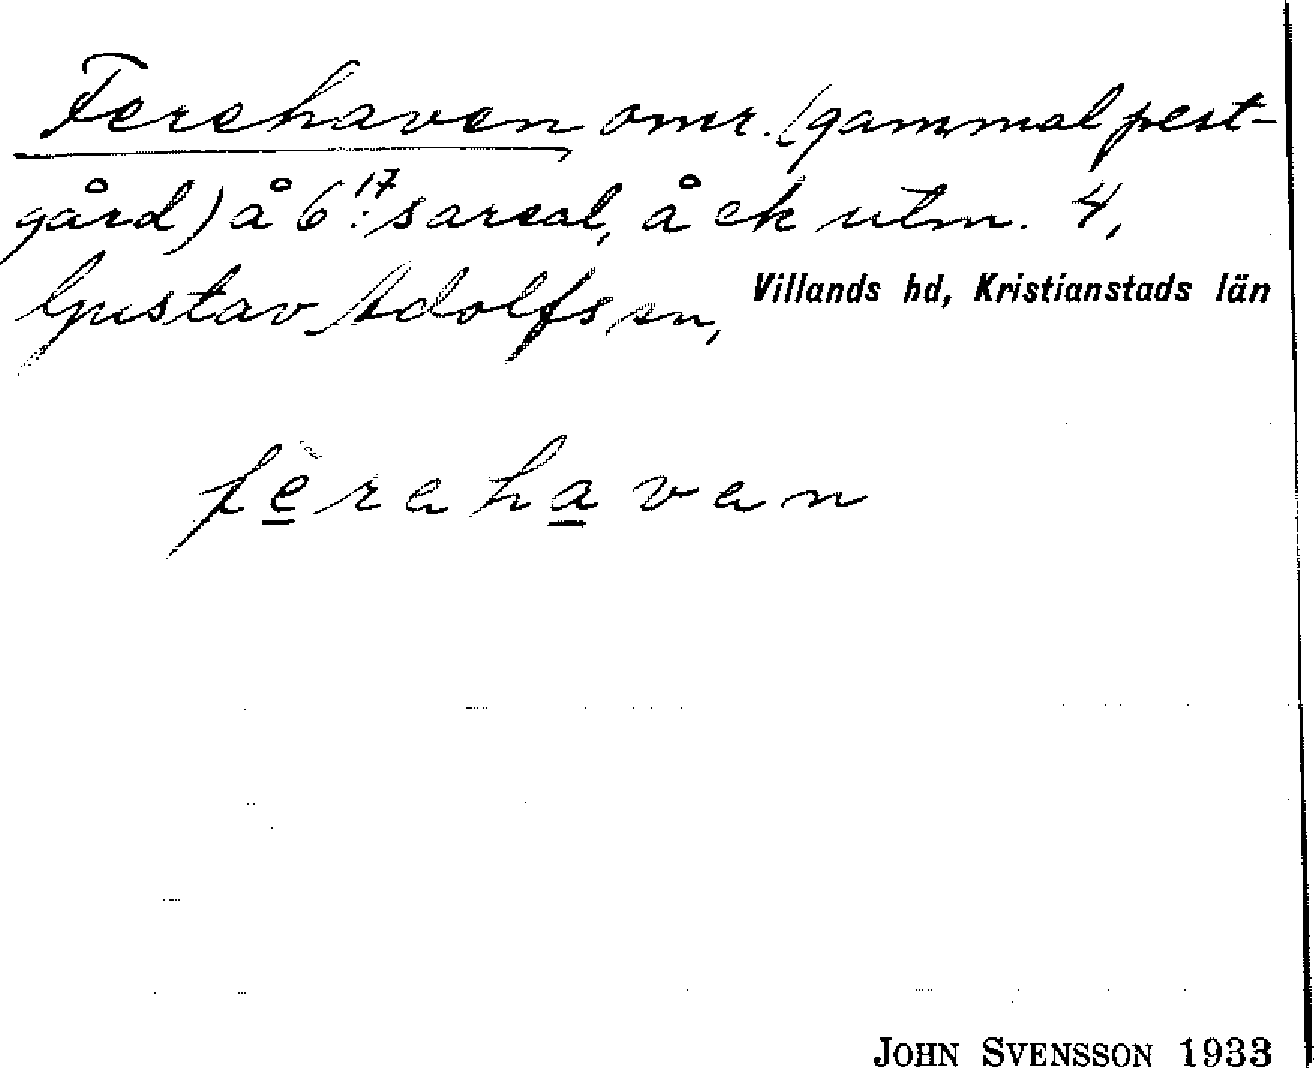 Ferehaven omr. (gammal pest-
gård) å 6¹⁷:s areal, å ek utm. 4,
Gustav Adolfs sn,
Villands hd, Kristianstads län
fèrehaven
JOHN SVENSSON 1933